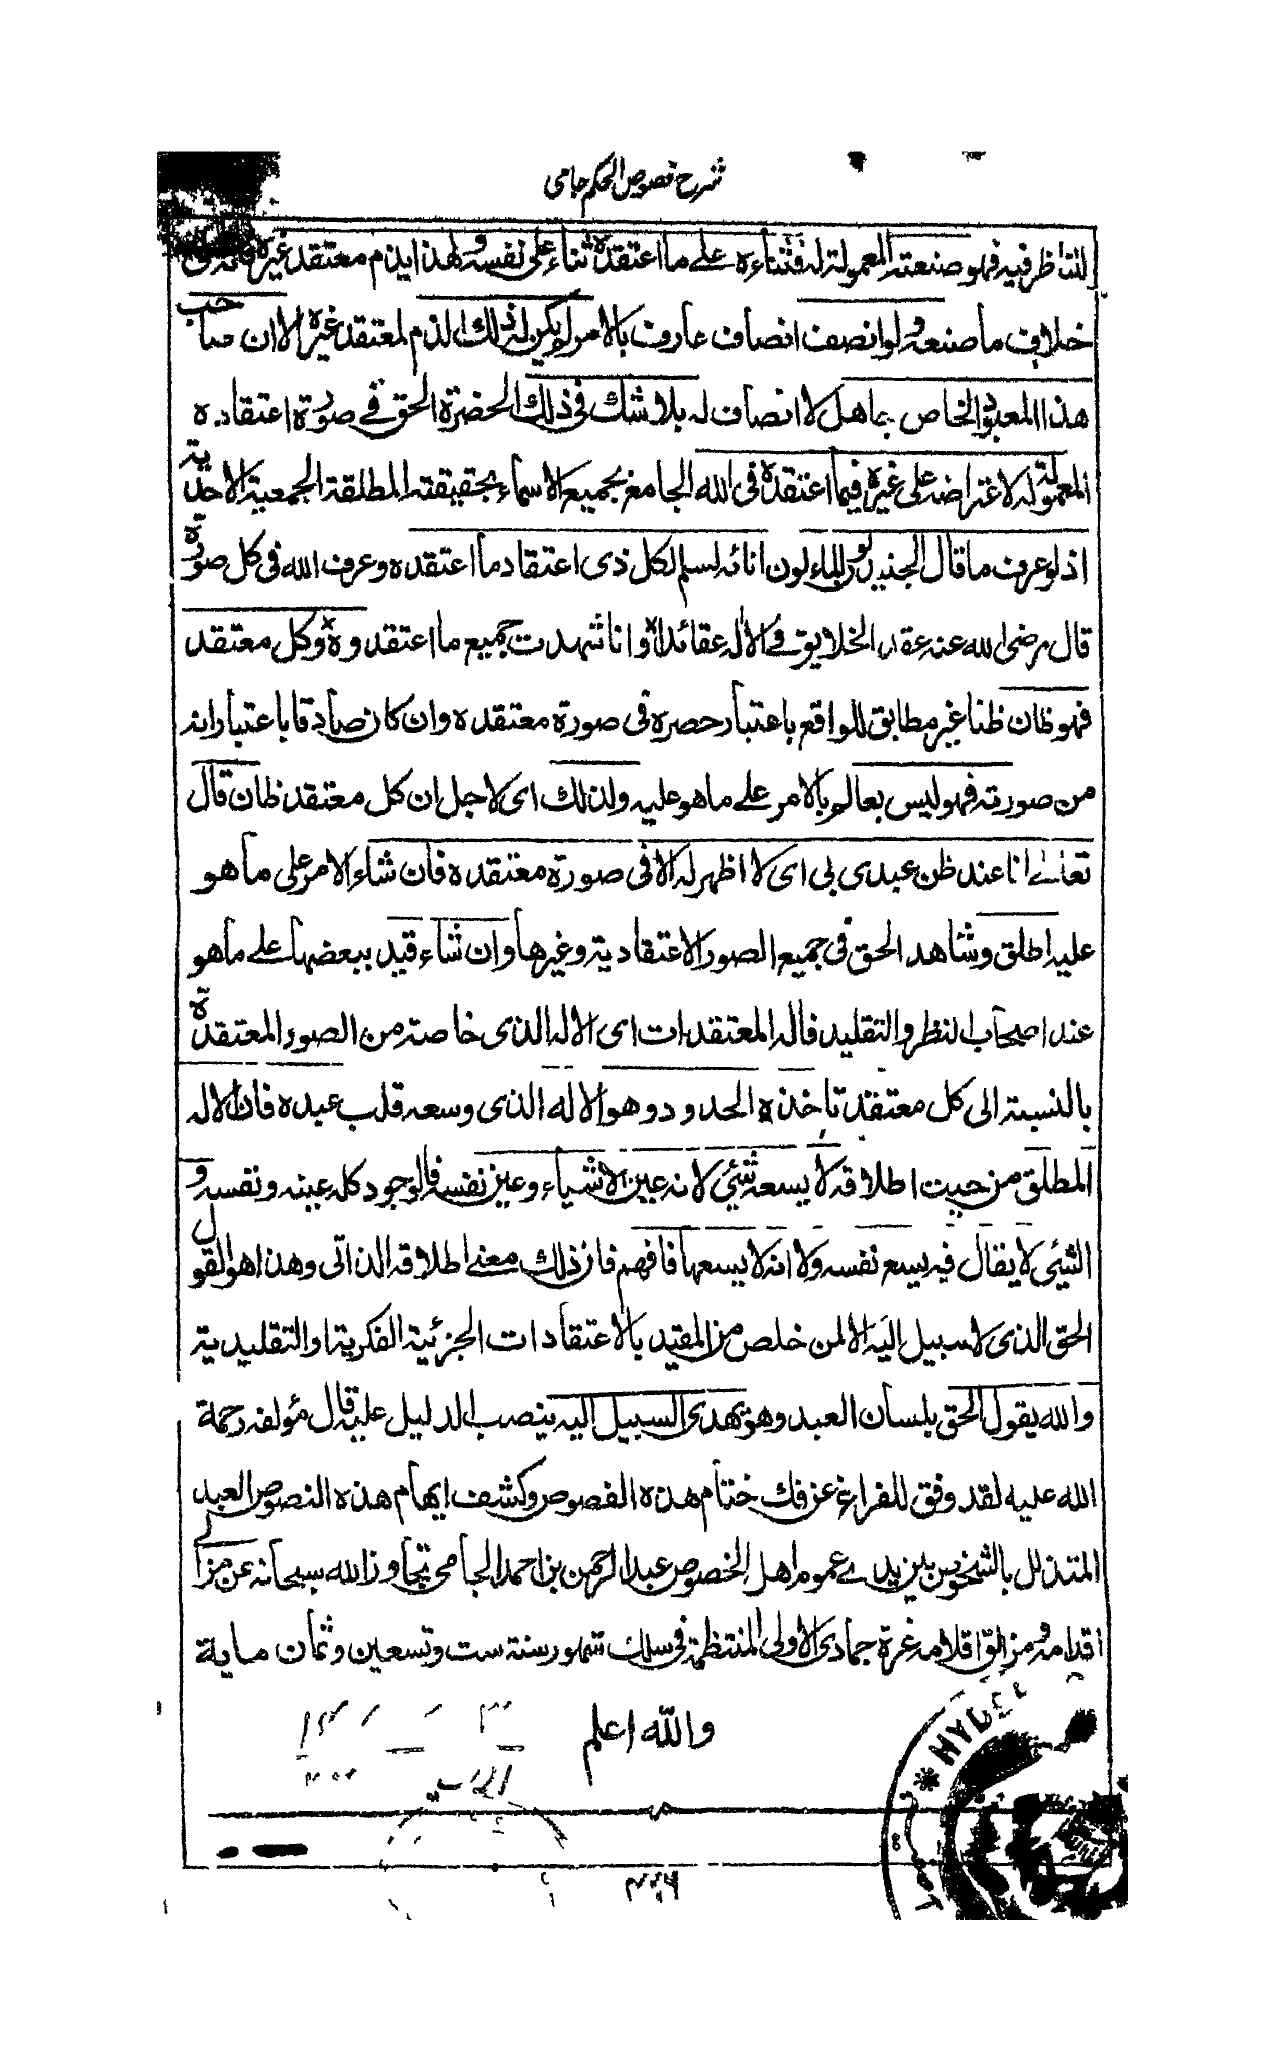 شرح فصوص الحكم جامی
للناظر فيه فهو صنعته المعمولة له فثناءه علے ما اعتقده ثناء علی نفسه ولهذا يذم معتقد غيره
خلاف ما صنعه ولو انصف انصاف عارف بالامر لم يكن له ذلك الذم لمعتقد غيره الا ان صاحب
هذا المعبود الخاص جاهل لا انصاف له بلا شك فی ذلك الحضرة الحق فے صورة اعتقاده
المعمولة له لاعتراضه علی غيره فيما اعتقده فی الله الجامع بجميع الاسماء بحقيقته المطلقة الجمعية الاحدية
اذ لو عرف ما قال الجنيد لون الماء لون انائه لسلم لكل ذی اعتقاد ما اعتقده وعرف الله فی كل صورة
قال رضی الله عنه عقد الخلايق فے الاله عقائدا وانا شهدت جميع ما اعتقدوه وكل معتقد
فهو ظان ظنا غير مطابق للواقع باعتبار حصره فی صورة معتقده وان كان صادقا باعتبار انه
من صورته فهو ليس بعالم بالامر علے ما هو عليه ولذلك ای لاجل ان كل معتقد ظان قال
تعالے انا عند ظن عبدی بی ای لا اظهر له الا فی صورة معتقده فان شاء الامر علی ما هو
عليه اطلق وشاهد الحق فی جميع الصور الاعتقادية وغيرها وان شاء قيد ببعضها علے ما هو
عند اصحاب النظر والتقليد فاله المعتقدات ای الاله الذی خاصة من الصور المعتقدة
بالنسبة الی كل معتقد تاخذه الحدود وهو الاله الذی وسعه قلب عبده فان الاله
المطلق من حيث اطلاقه لا يسعه شئی لانه عين الاشياء وعين نفسه فالوجود كله عينه ونفسه و
الشئی لا يقال فيه يسع نفسه ولا انه لا يسعها فافهم فان ذلك معنے اطلاقه الذاتی وهذا هو القول
الحق الذی لا سبيل اليه الا لمن خلص من المقيد بالاعتقادات الجزئية الفكرية او التقليدية
والله يقول الحق بلسان العبد وهو يهدی السبيل اليه بنصب الدليل عليه قال مؤلفه رحمة
الله عليه لقد وفق للفراغ عن فك ختام هذه الفصوص وكشف ايهام هذه النصوص العبد
المتذلل بالشخوص بين يدے عموم اهل الخصوص عبد الرحمن بن احمد الجامی تجاوز الله سبحانه عن مزال
اقدامه ومزالق اقلامه غرة جمادی الاولی المنتظمة فی سلك شهور سنة ست وتسعين وثمان ماية
والله اعلم
HYDE